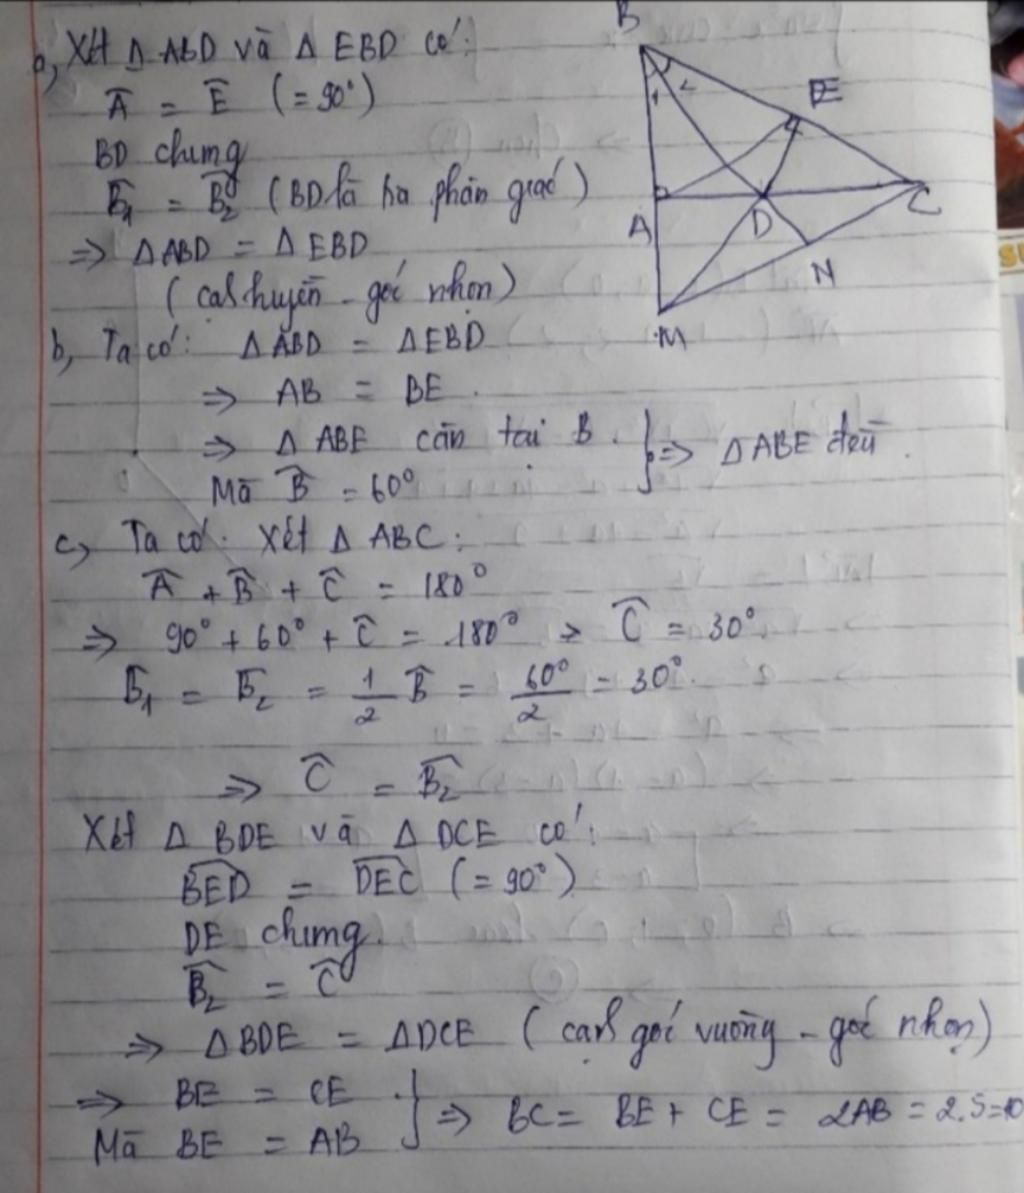 a, Xét Δ ABD và Δ EBD có:
Â = Ê (= 90°)
BD chung
B̂₁ = B̂₂ (BD là tia phân giác)
=> Δ ABD = Δ EBD
(cạnh huyền - góc nhọn)
b, Ta có: Δ ABD = Δ EBD
=> AB = BE.
=> Δ ABE cân tại B. } => Δ ABE đều.
Mà B̂ = 60°
c, Ta có: Xét Δ ABC:
Â + B̂ + Ĉ = 180°
=> 90° + 60° + Ĉ = 180° > Ĉ = 30°.
B̂₁ = B̂₂ = 1/2 B̂ = 60°/2 = 30°.
=> Ĉ = B̂₂
Xét Δ BDE và Δ DCE có:
BED = DEC (= 90°)
DE chung.
B̂₂ = Ĉ
=> Δ BDE = Δ DCE (cạnh góc vuông - góc nhọn)
=> BE = CE } => BC = BE + CE = 2AB = 2.5=10
Mà BE = AB
B
1 2
E
A
D
C
N
M